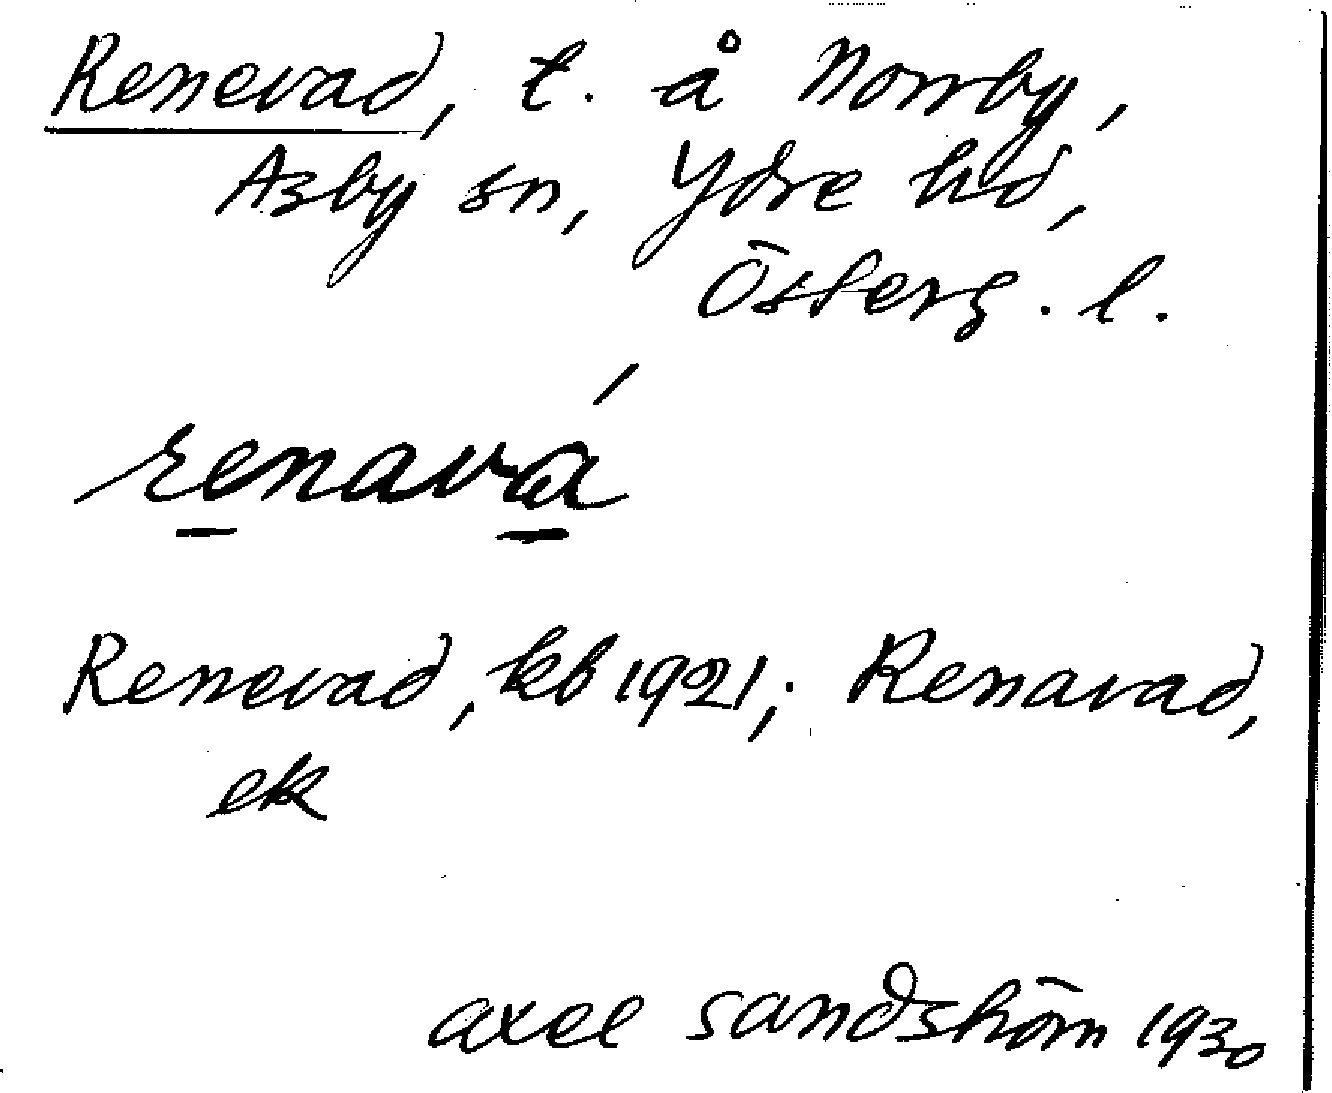 Renevad, t. å Norrby,
Asby sn, Ydre hd,
Österg. l.
renavá
Renevad, kb 1921; Renavad,
ek
axel sandström 1930